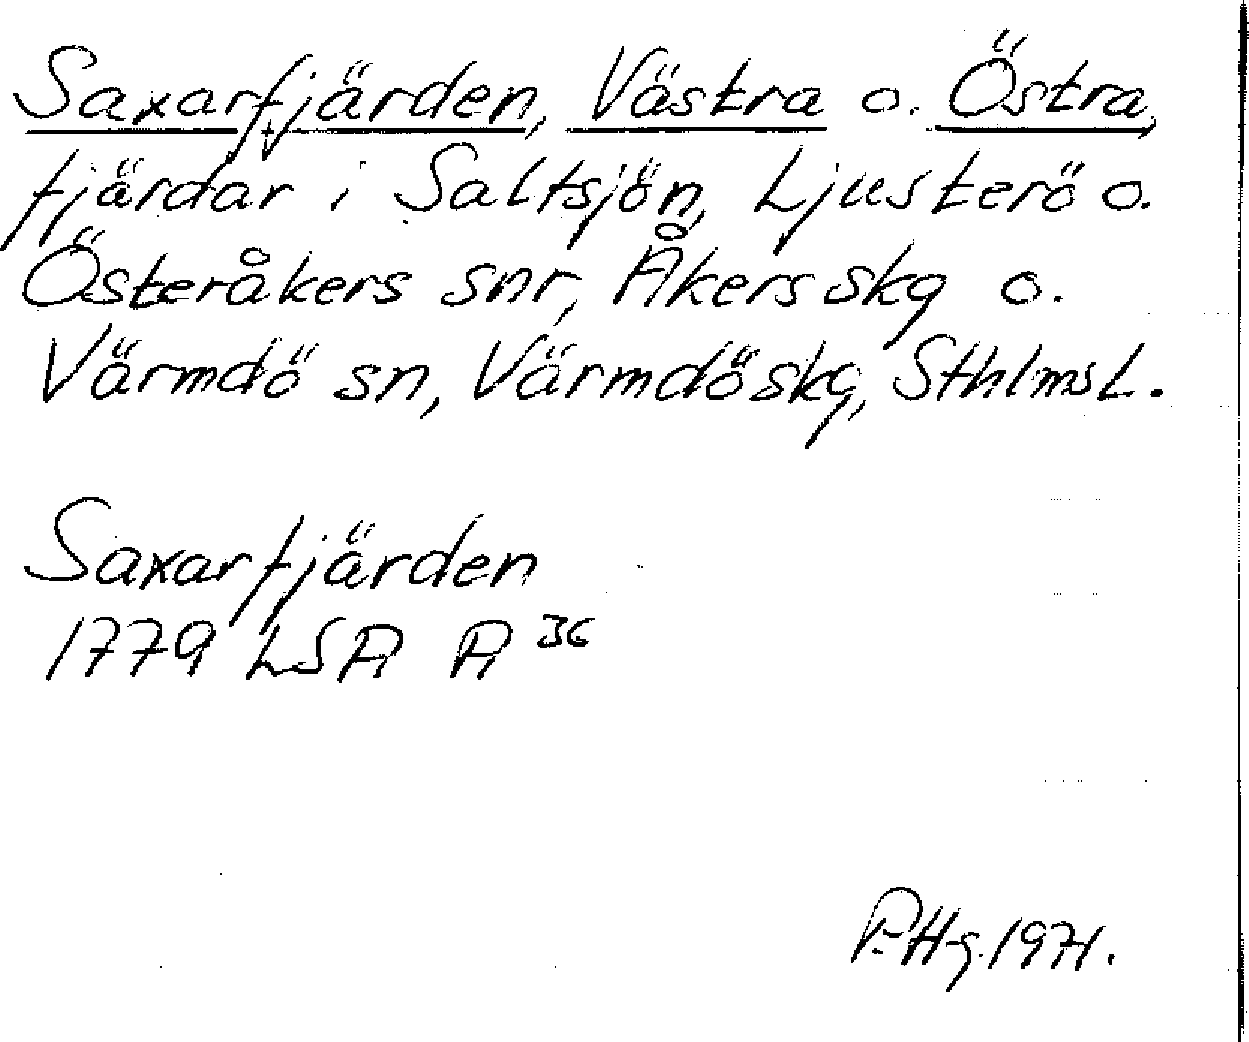 Saxarfjärden, Västra o. Östra,
fjärdar i Saltsjön, Ljusterö o.
Österåkers snr, Åkers skg o.
Värmdö sn, Värmdö skg, Sthlms L.
Saxarfjärden
1779 LSA A 36
P.Hg. 1971.